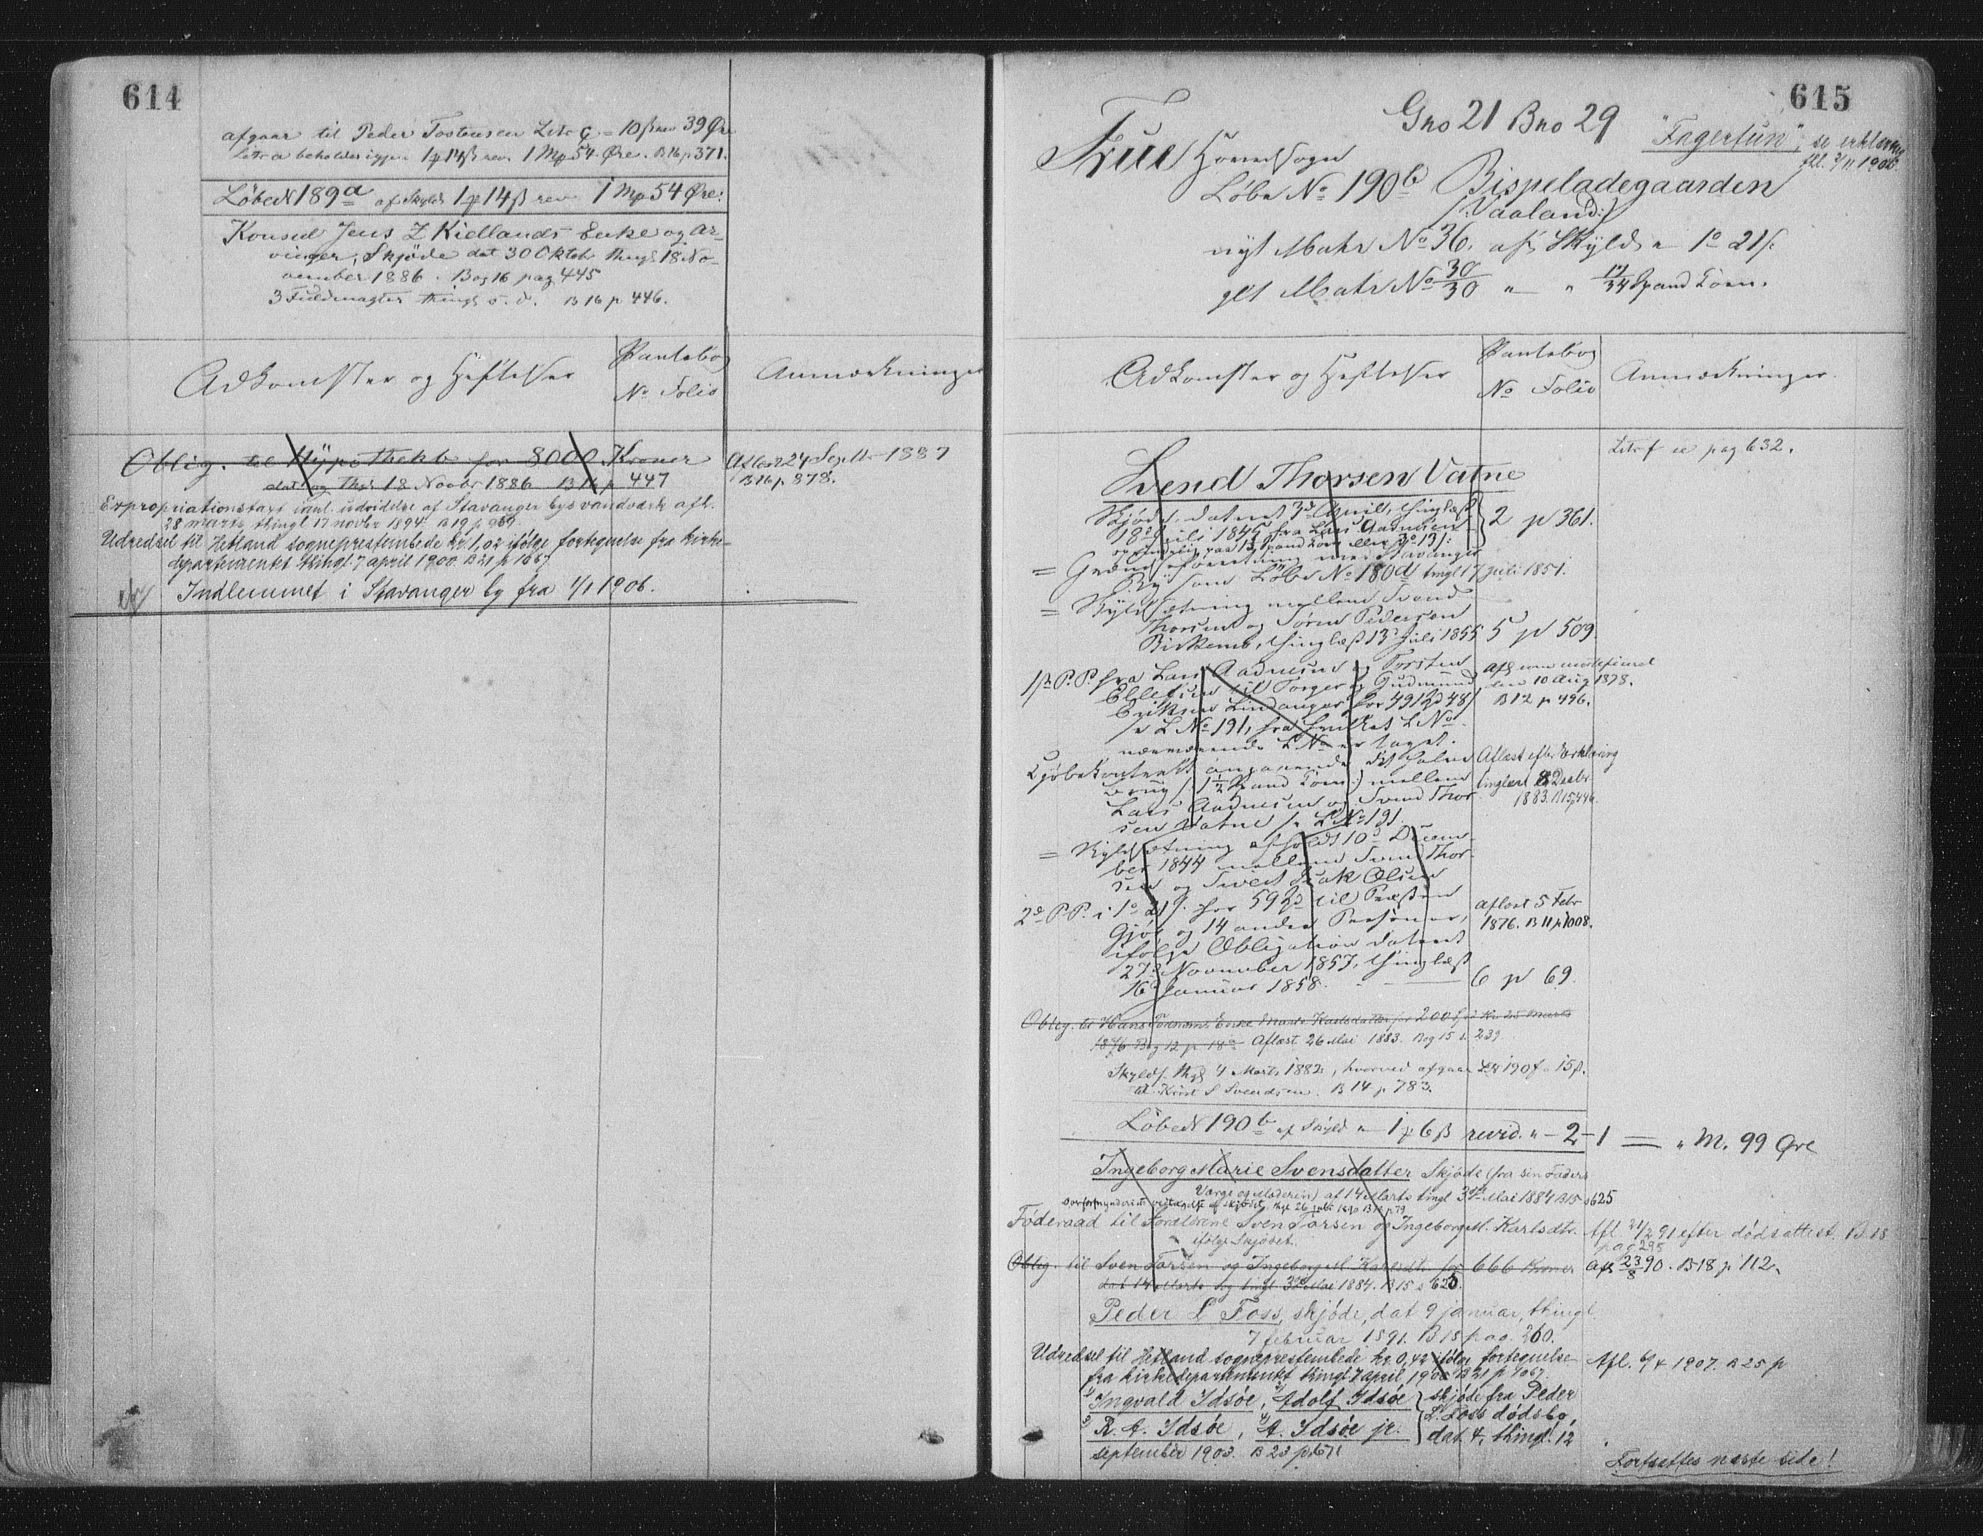 614
afgaar til Peder Tostensen Litr c = 10 ß rev 39 Øre
Litr a beholder igjen 1 p 14 ß rev. 1 Mp 54 Øre. B 16 p 371.
Løbe № 189a af Skyld 1 p 14 ß rev 1 Mp 54 Øre:
Konsul Jens Z Kiellands Enke og Ar-
vinger, Skjøde dat 30 Oktobr thingl 18 No-
vember 1886. Bog 16 pag 445
3 Fuldmagter thingl s. d. B 16 p 446.
Adkomster og Heftelser
Pantebog
No Folio
Anmærkninger
Oblig. til Hypothekb for 8000 Kroner
dat og thgl 18 Novbr 1886 B 16 p 447
Aflæst 24 Septbr 1887
B 16 p. 878.
Expropriationstaxt vedl. udvidelse af Stavanger bys vandværk afh.
28 marts, thingl 17 novbr 1894. B 19 p 969.
Udredsel til Hetland sogneprestembede kr. 1,02 ifølge fortegnelse fra kirke-
departementet thingl. 7 april 1900. B 21 p 1067.
Indlemmet i Stavanger by fra 1/1 1906.
615
Gno 21 Bno 29
"Fagertun", se erklæring
Frue Hovedsogn
Løbe No 190b Bispeladegaarden
/: Vaaland :/
nyt Matr No 36, af Skyld " 1 o 21 ß.
glt Matr No 30/30 " " Spand Korn.
Adkomster og Heftelser
Pantebog
No Folio
Anmærkninger.
Litr f se pag 632.
Svend Thorsen Vatne
Skjøde, dateret 3d April, thinglæst
18d Juli 1845 fra Lars Aadnesen
2 p 361.
= Grændseforretning med Stavanger
By som Løbe No 180d tingl 17 Juli 1851.
= Skyldsætning mellem Svend
Thorsen og Søren Pedersen
Birkenes, thinglæst 13d Juli 1855 5 p 509.
1ste P. P. fra Lars Aadnesen og Torsten
Ellefsen til Torger og Gudmund
Eriksen Lindanger for 491 Spd 48 ß
se L No 191, fra hvilket L No
nærværende L No er taget.
afl som mortificeret
den 10 Aug 1878.
B 12 p 496.
Kjøbekontrakt angaaende det halve
brug /: 1 1/2 Spand Korn :/ mellem
Lars Aadnesen og Svend Thor-
sen Vatne se L No 191.
Aflæst efter Erklæring
tinglæst 8 Decbr
1883. B 15 p 446.
= Skyldsætning afholdt 10d Decem-
ber 1844 mellem Svend Thor-
sen og Sivert Isak Olsen
2d P. P. i 1 o 21 ß. for 59 Spd til Præsten
Gjør og 14 andre Personer,
ifølge Obligation dateret
27d November 1857, thinglæst
16d Januar 1858. 6 p 69.
aflæst 5 Febr
1876. B 11 p 1008.
Oblig. til Hans Enke Marte Karlsdatter for 200 25 Marts
1876 Bog 12 p 18 Aflæst 26 Mai 1883. Bog 15 s. 239
Skyldf. thgl 4 Marts 1882, hvorved afgaar L № 190f = 15 ß.
til Krist S Svendsen. B 14 p 783.
Løbe № 190b af Skyld " 1 p 6 ß revid. " - 2 - 1 = " M. 99 Øre
Ingeborg Marie Svensdatter Skjøde (fra sin Faders
Værge og Moderen) af 14 Marts tingl 3die Mai 1884 B 15 s 625
Føderaad til Forældrene Sven Torsen og Ingeborg M. Karlsdtr.
ifølge Skjødet.
Afl 21/2 91 efter dødsattest. B. 18
pag 295
Oblig. til Sven Torsen og Ingeborg M Karlsdtr for 666 Kroner
dat 14 Marts og tingl 3die Mai 1884. B 15 s 626.
Afl 23/8 90. B 18 p 112.
Peder L Foss, skjøde, dat 9 januar, thingl
7 februar 1891. B 18 pag. 260.
Udredsel til Hetland sogneprestembede kr. 0,42 ifølge fortegnelse
fra kirkedepartementet thingl 7 april 1900 B 21 p 1067.
Afl. 6/4 1907. B 25 p
1) Ingvald Idsøe, 2) Adolf Idsøe
3) R. A. Idsøe, 4) A. Idsøe jr.
skjøde fra Peder
L. Foss dødsbo,
dat 4, thingl. 12
september 1903. B 23 p 671
Fortsættes næste side!